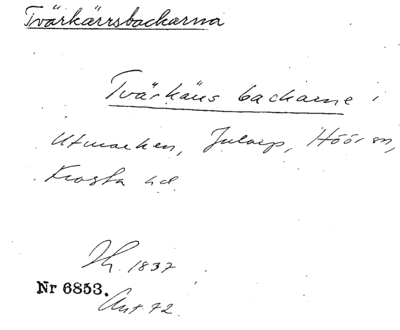 Tvärkärrsbackarna
Tvärkärrs backarne i
Utmarken, Jularp, Höör sn,
Frosta hd.
1837
Nr 6853.
Ant. 72.